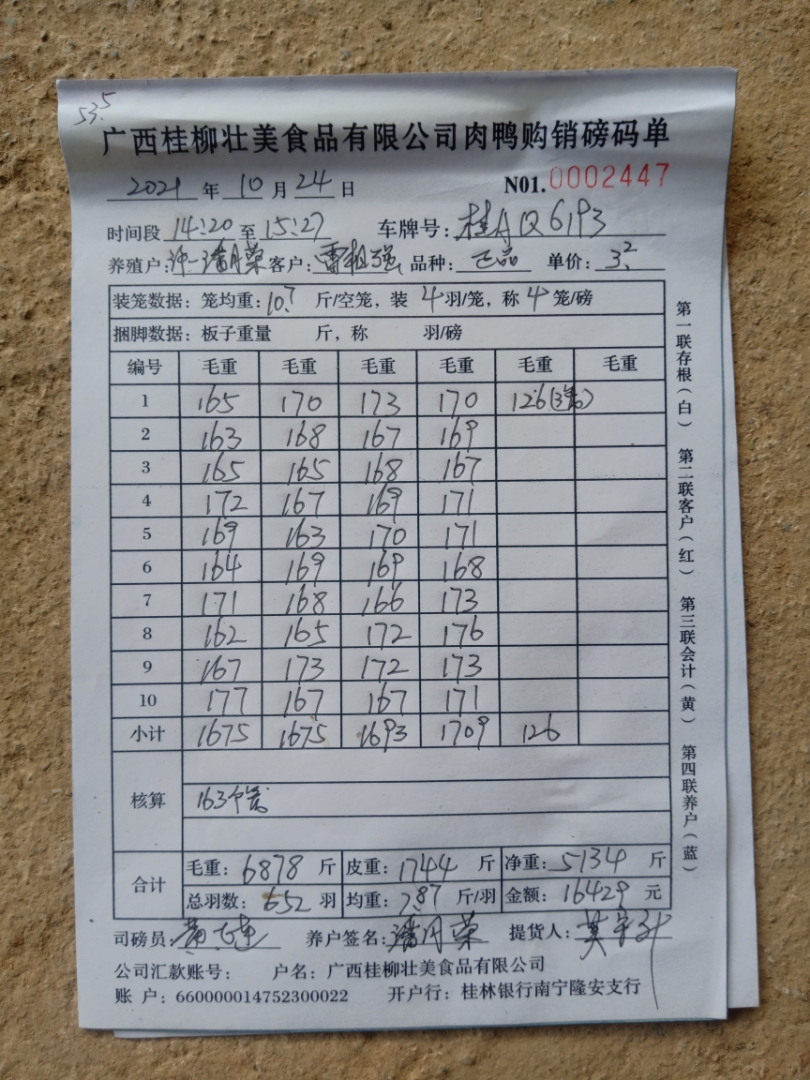 53.5
广西桂柳壮美食品有限公司肉鸭购销磅码单
2021 年 10 月 24 日 N01.0002447
时间段 14:20 至 15:27 车牌号: 桂A Q6193
养殖户: 潘月荣 客户: 雷祖强 品种: 正品 单价: 3.2
装笼数据: 笼均重: 10.7 斤/空笼, 装 4 羽/笼, 称 4 笼/磅
捆脚数据: 板子重量 斤, 称 羽/磅
编号 毛重 毛重 毛重 毛重 毛重 毛重
1 165 170 173 170 126(3笼)
2 163 168 167 169
3 165 165 168 167
4 172 167 169 171
5 169 163 170 171
6 164 169 169 168
7 171 168 166 173
8 162 165 172 176
9 167 173 172 173
10 177 167 167 171
小计 1675 1675 1693 1709 126
核算 163个笼
合计 毛重: 6878 斤 皮重: 1744 斤 净重: 5134 斤
总羽数: 652 羽 均重: 7.87 斤/羽 金额: 16429 元
司磅员: 养户签名: 潘月荣 提货人:
公司汇款账号: 户名: 广西桂柳壮美食品有限公司
账 户: 660000014752300022 开户行: 桂林银行南宁隆安支行
第一联存根(白) 第二联客户(红) 第三联会计(黄) 第四联养户(蓝)